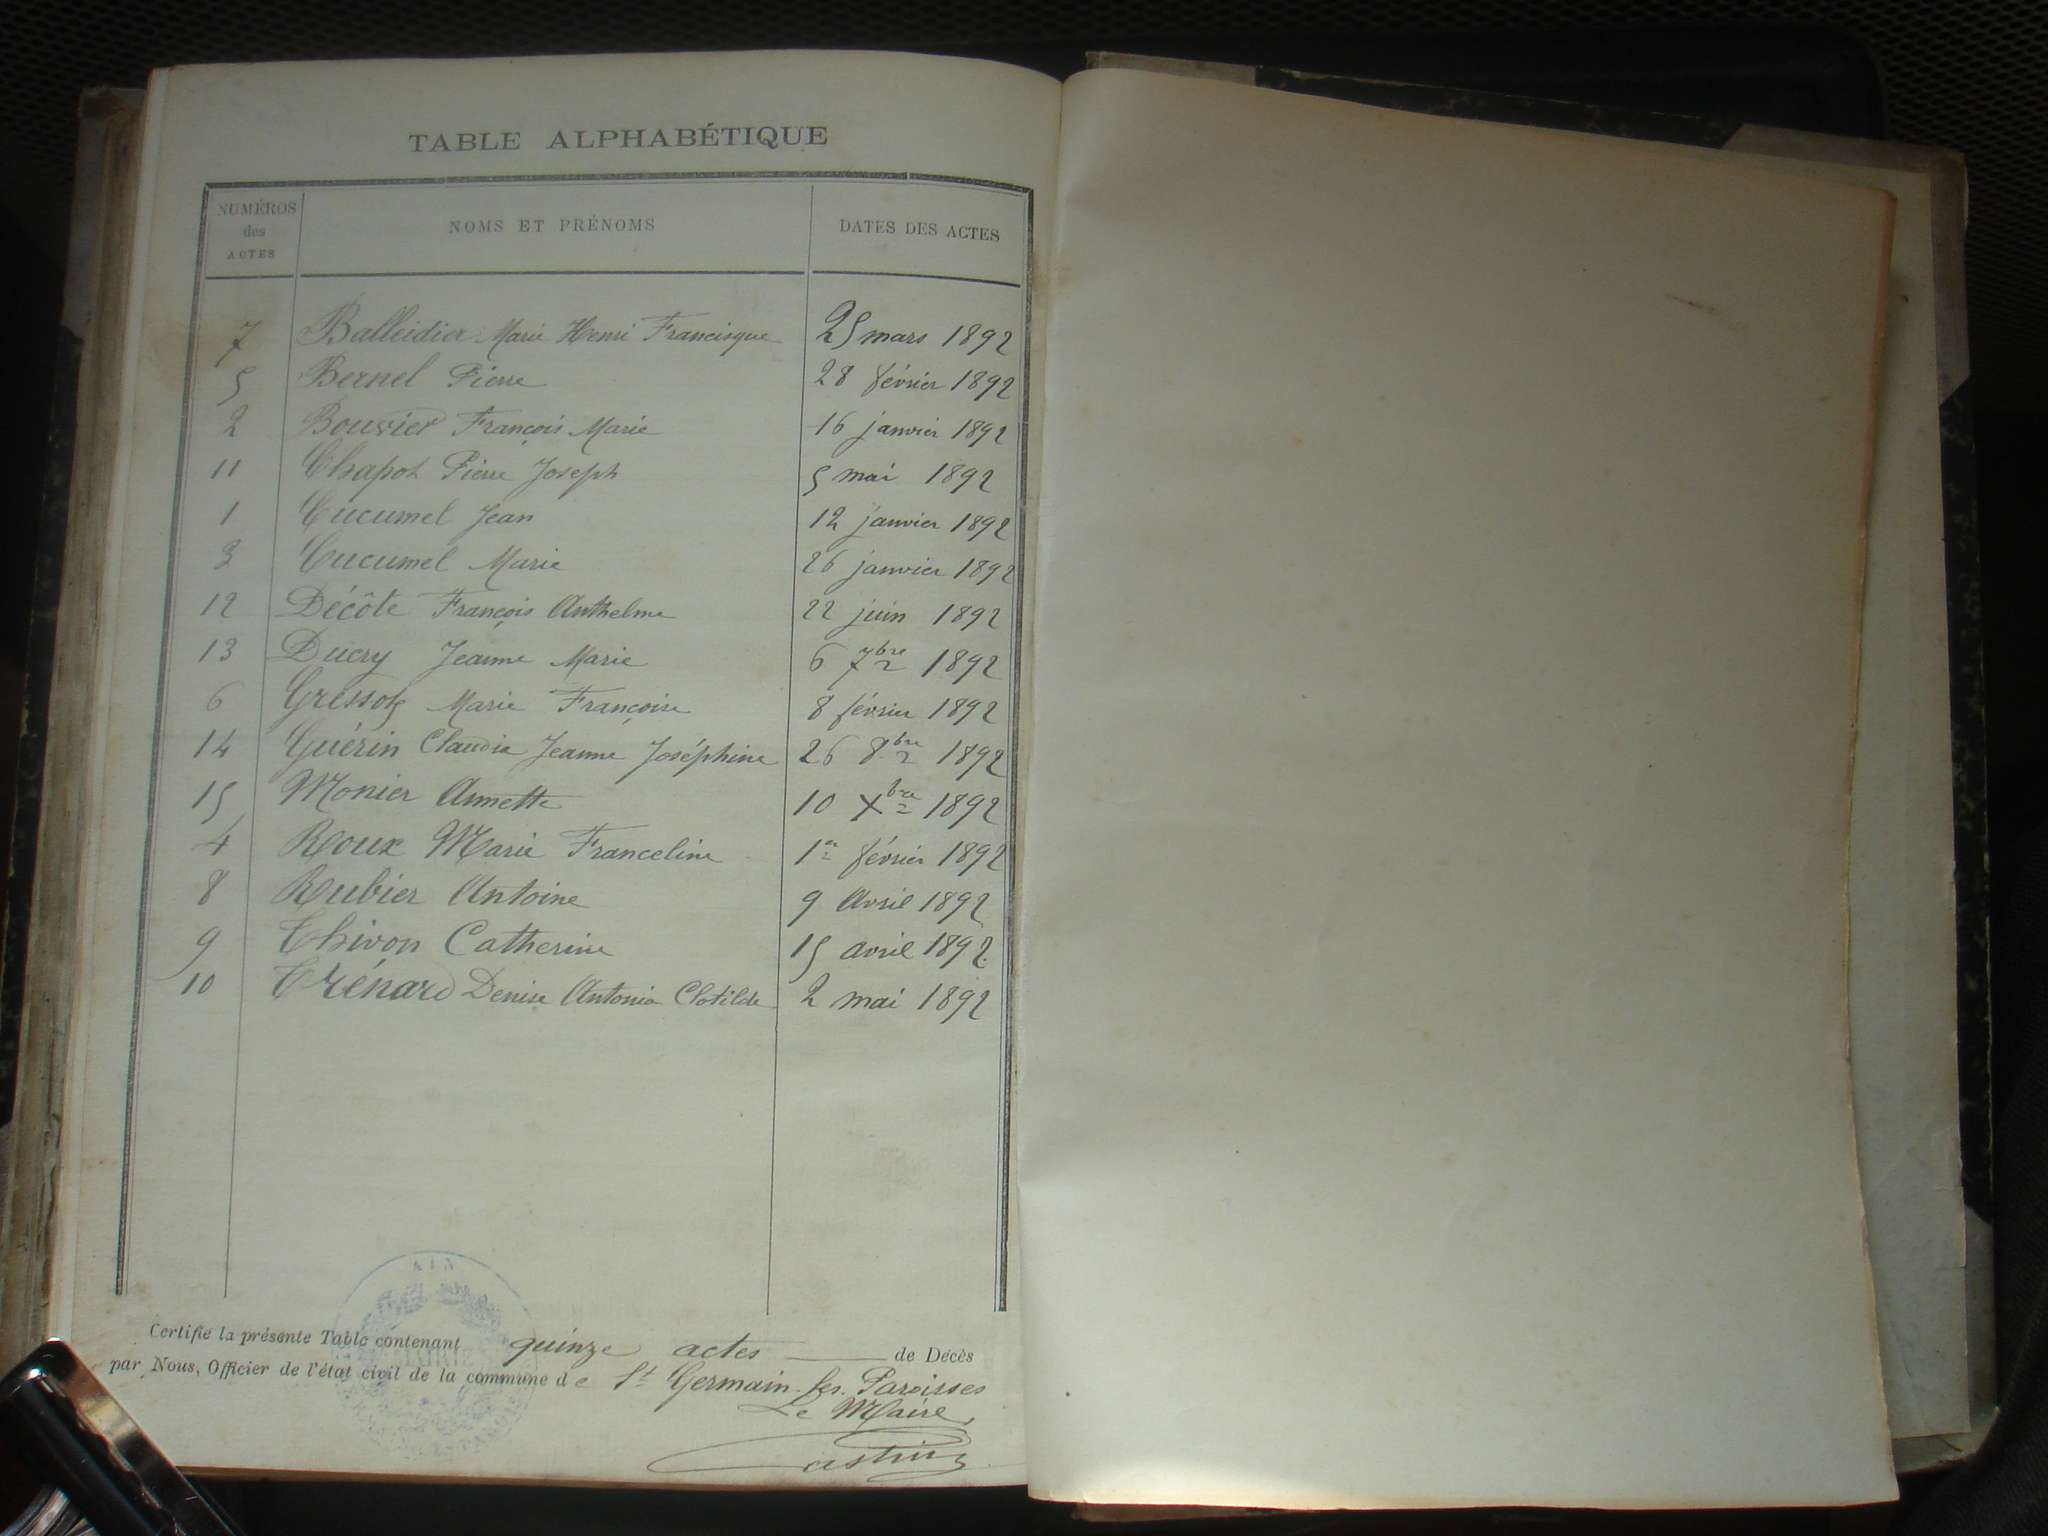 TABLE ALPHABÉTIQUE
NUMÉROS des ACTES NOMS ET PRÉNOMS DATES DES ACTES
7 Balleidier Marie Henri Francisque 25 mars 1892
5 Bernel Pierre 28 février 1892
2 Bouvier François Marie 16 janvier 1892
11 Chapot Pierre Joseph 5 mai 1892
1 Cucumel Jean 12 janvier 1892
3 Cucumel Marie 26 janvier 1892
12 Décôte François Anthelme 22 juin 1892
13 Ducry Jeanne Marie 6 7bre 1892
6 Marie Françoise 8 février 1892
14 Guérin Claudia Jeanne Joséphine 26 8bre 1892
15 Monier Annette 10 Xbre 1892
4 Roux Marie Franceline 1er février 1892
8 Rubier Antoine 9 Avril 1892
9 Thivon Catherine 15 avril 1892
10 Trénard Denise Antonia Clotilde 2 mai 1892
AIN
Certifié la présente Table contenant quinze actes de Décès
par Nous, Officier de l'état civil de la commune de St Germain-les-Paroisses
Le Maire,